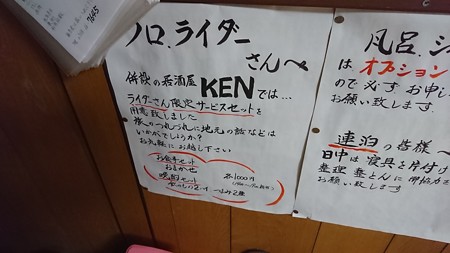 1645
ソロ.ライダー
さんへ
併設の居酒屋 KENでは...
ライダーさん限定サービスセットを
用意致しました
旅のつれづれに地元の話などは
いかがでしょうか?
お気軽にお越し下さい
おまかせ
晩酌セット
各1000円
つまみ2種
風呂.シ
は オプション
ので 必ず お申し
お願い致します
連泊の皆様へ
日中は寝具を片付け
整理整とんに
お願い致します